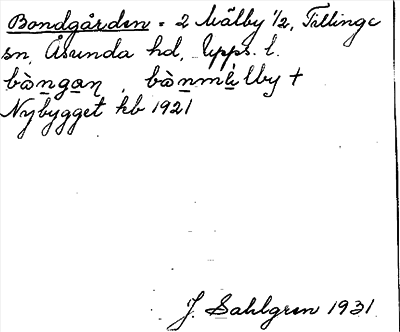 Bondgården = 2 Mälby 1/2, Tillinge
sn, Åsunda hd, Upps. l.
bòngaɳ, bònmɛ̀lby +
Nybygget kb 1921
J. Sahlgren 1931